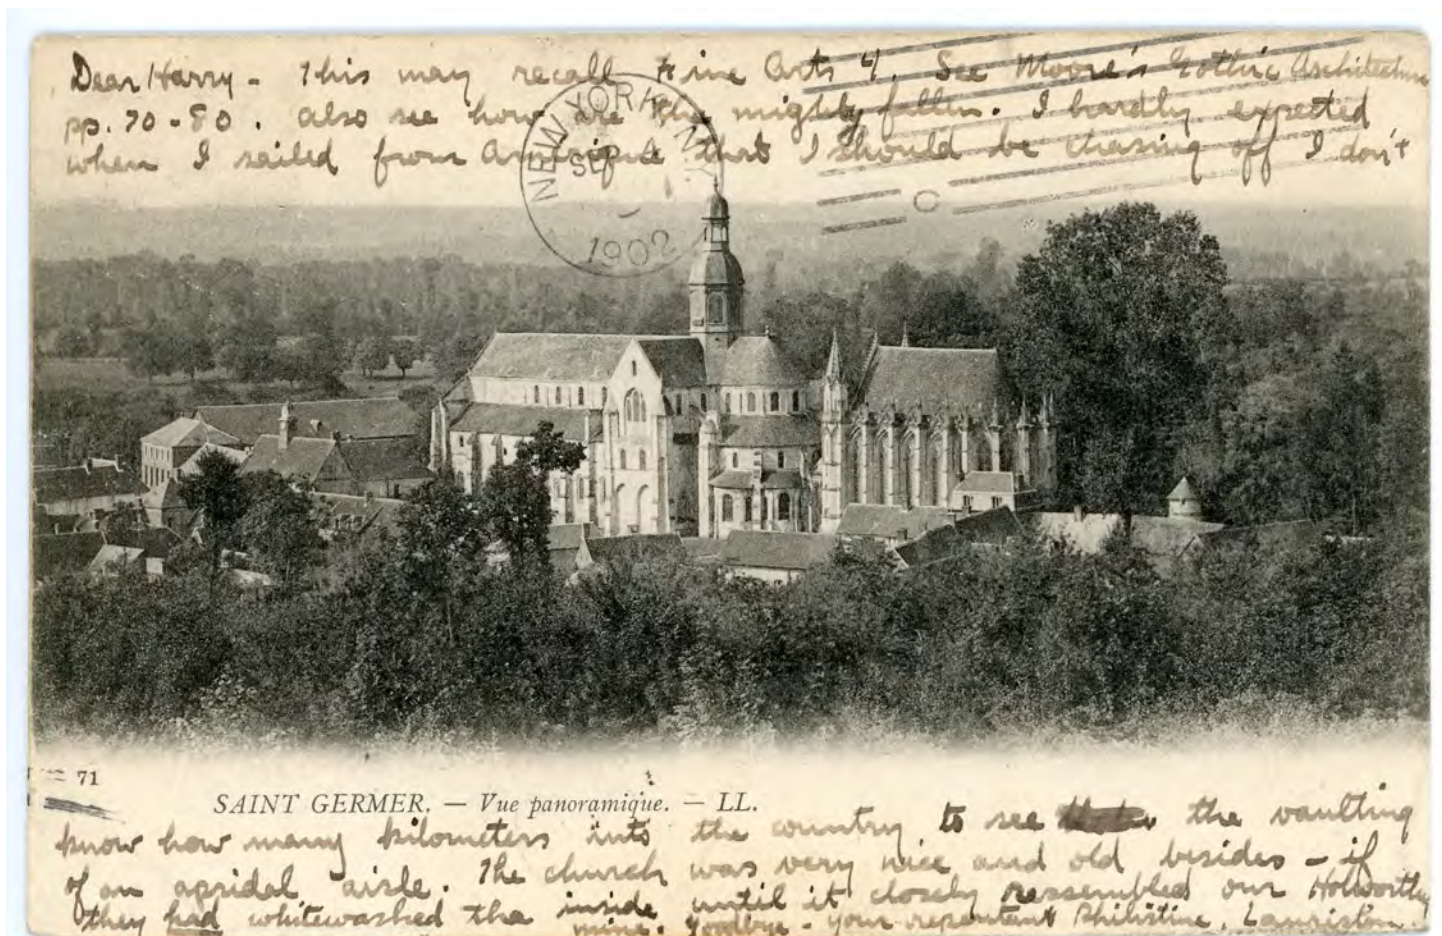 Dear Harry - This may recall Fine Arts 4. See Moore's Gothic Architecture
pp. 70-80. also see how are the mighty fallen. I hardly expected
when I sailed from Amerique that I should be chasing off I don't
NEW YORK, N.Y.
SEP 4
1902
C
71
SAINT GERMER. — Vue panoramique. — LL.
know how many kilometers into the country to see the vaulting
of an apsidal aisle. The church was very nice and old besides - if
they had whitewashed the inside until it closely ressembled our Holworthy
mine. Goodbye - your repentant Philistine, Lauriston.